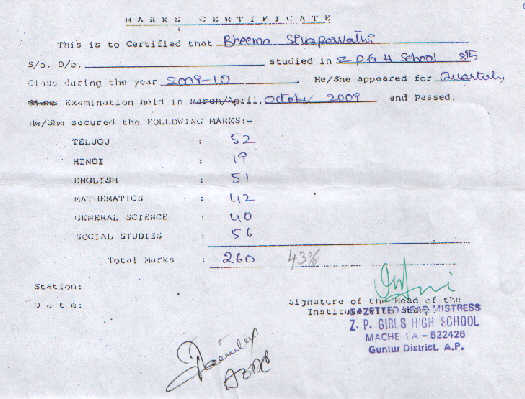 MARKS CERTIFICATE
This is to Certified that Bheema
S/o. D/o. studied in Z P G H School 8th
Class during the year 2009-10 He/She appeared for Quarterly
Examination held in March/April, October 2009 and Passed.
He/She secured the FOLLOWING MARKS:-
TELUGU : 52
HINDI : 19
ENGLISH : 51
MATHEMATICS : 42
GENERAL SCIENCE : 40
SOCIAL STUDIES : 56
Total Marks : 260 43%
Station:
Date:
Signature of the Head of the
GAZETTED HEAD MISTRESS
Z. P. GIRLS HIGH SCHOOL
522426
Guntur District, A.P.